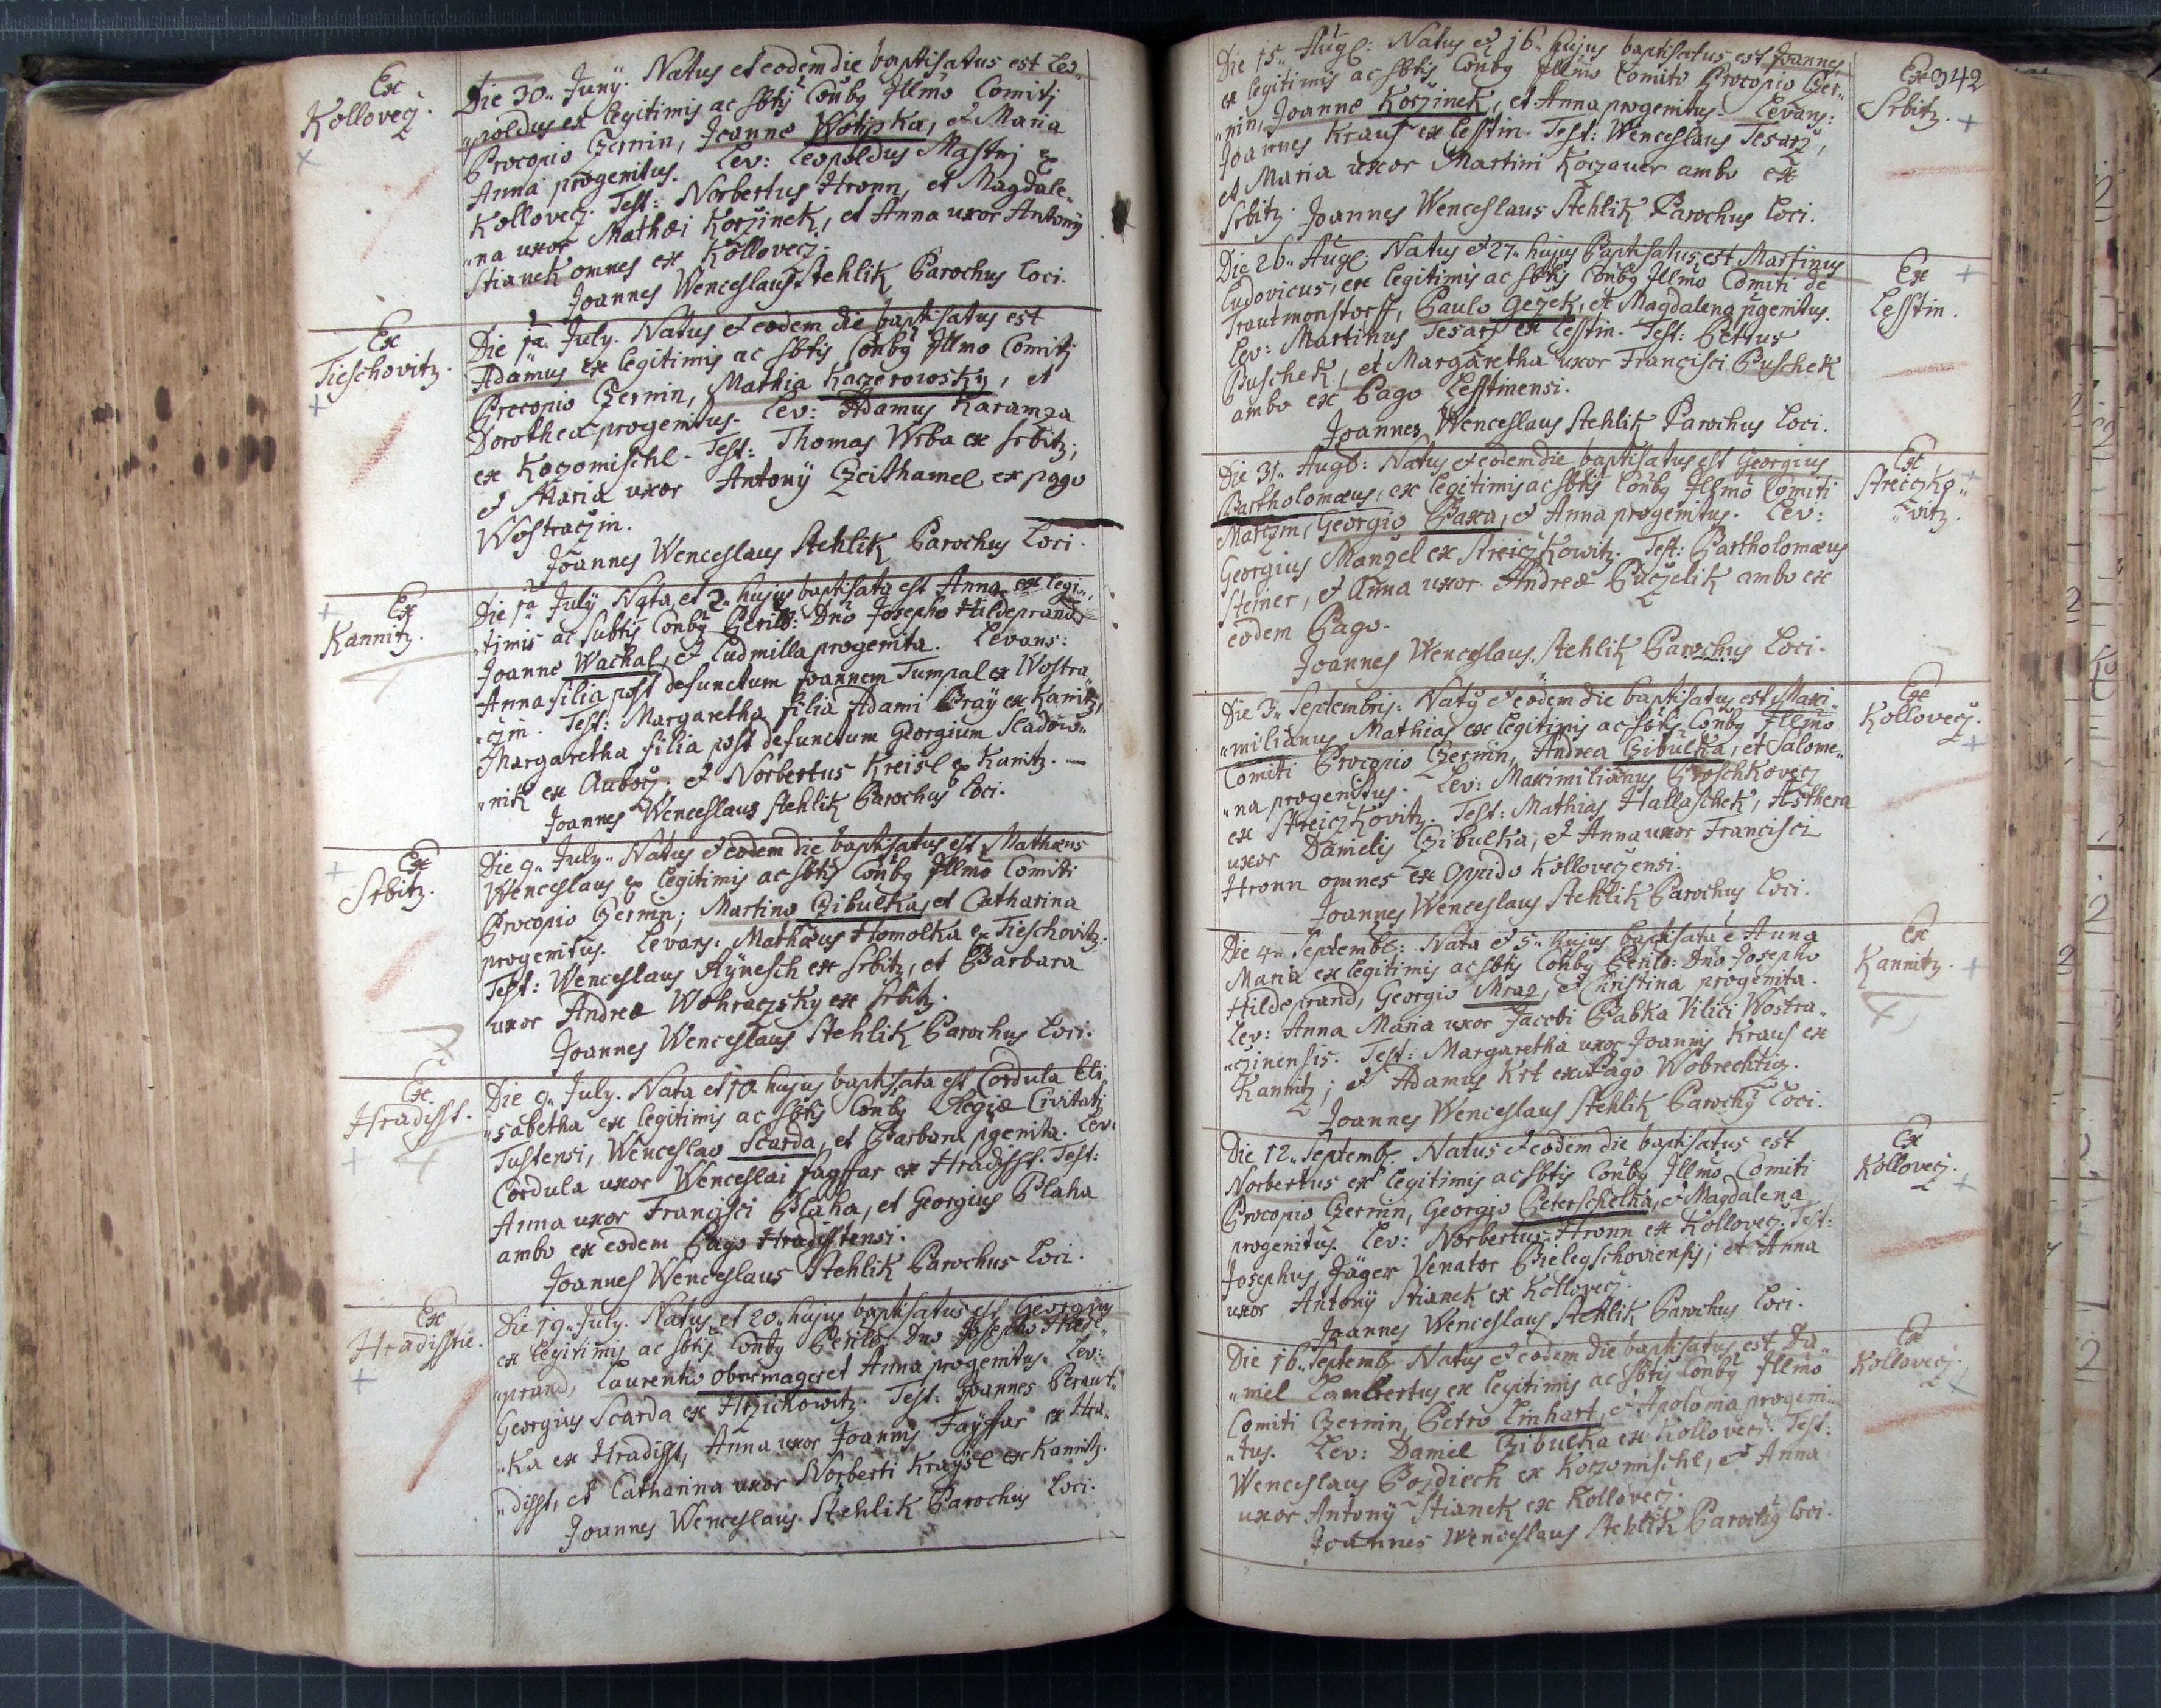 Ex
Kollovecz.
Die 30„ Junÿ. Natus et eodem die baptisatus est Leo„
„poldus ex legitimis ac sbtis Conbg Illmo Comiti
Procopio Czernin, Joanne Wotipka, et Maria
Anna progenitus. Lev: Leopoldus Mastnj ex
Kollovecz. Test: Norbertus Hronn, et Magdale„
„na uxor Mathæi Korzinek, et Anna uxor Antonÿ
Stianek omnes ex Kollovecz.
Joannes Wenceslaus Stehlik Parochus Loci.
Ex
Tieschovitz.
Die 1a July. Natus et eodem die baptisatus est
Adamus ex legitimis ac sbtis Conbg Illmo Comiti
Procopio Czernin, Mathia Kaczerowsky, et
Dorothea progenitus. Lev: Adamus Karamza
ex Koczomischl. Test: Thomas Wrba ex Srbitz,
et Maria uxor Antonÿ Czeithamel ex pago
Wostraczin.
Joannes Wenceslaus Stehlik Parochus Loci.
Ex
Kannitz.
Die 1a July Nata, et 2„ hujus baptisata est Anna ex legi„
„timis ac subtis Conbg Perill: Dno Josepho Hildeprand
Joanne Wachal, et Ludmilla progenita. Levans:
Anna filia post defunctum Joannem Tumpal ex Wostra„
„czin. Test: Margaretha filia Adami Bray ex Kanitz,
Margaretha filia post defunctum Georgium Sladow„
„nik ex Aubocz, et Norbertus Kreisl ex Kanitz.
Joannes Wenceslaus Stehlik Parochus Loci.
Ex
Srbitz.
Die 9„ July„ Natus et eodem die baptisatus est Mathæus
Wenceslaus ex legitimis ac sbtis Conbg Illmo Comiti
Procopio Czernin, Martino Czibulka, et Catharina
progenitus. Levans. Mathæus Homolka ex Tieschovitz.
Test: Wenceslaus Rÿnesch ex Srbitz, et Barbara
uxor Andreæ Wohraczsky ex Srbitz.
Joannes Wenceslaus Stehlik Parochus Loci.
Ex
Hradisst.
Die 9„ July. Nata et 10„ hujus baptisata est Cordula Eli„
„sabetha ex legitimis ac sbtis Conbg Regiæ Civitati
Tustensi, Wenceslao Scarda, et Barbara pgenita. Lev:
Cordula uxor Wenceslai fayffar ex Hradisst. Test:
Anna uxor Francisci Blaha, et Georgius Blaha
ambo ex eodem Pago Hradisstensi.
Joannes Wenceslaus Stehlik Parochus Loci.
Ex
Hradisstie.
Die 19„ July. Natus et 20„ hujus baptisatus est Georgius
ex legitimis ac sbtis Conbg Perill: Dno Josepho Hilde„
„prand, Laurentio Obermayer et Anna progenitus. Lev:
Georgius Scarda ex Hrzichowitz. Test: Joannes Beraut„
„Ka ex Hradisst, Anna uxor Joannis Fayffar ex Hra„
„disst, et Catharina uxor Norberti Kraysl ex Kannitz.
Joannes Wenceslaus Stehlik Parochus Loci.
342
Die 15„ Augt: Natus et 16„ hujus baptisatus est Joannes
ex legitimis ac sbtis Conbg Illmo Comiti Procopio Czer„
„nin, Joanne Korzinek, et Anna progenitus. Levans:
Joannes Kraus ex Lesstin. Test: Wenceslaus Tesarz,
et Maria uxor Martini Koczauer ambo ex
Srbitz. Joannes Wenceslaus Stehlik Parochus Loci.
Ex
Srbitz.
Die 26„ Augt: Natus et 27„ hujus Baptisatus est Martinus
Ludovicus, ex legitimis ac sbtis Conbg Illmo Comiti de
Trautmonstorff, Paulo Gezek, et Magdalena pgenitus.
Lev: Martinus Tesarz ex Lesstin. Test: Petrus
Buschek, et Margaretha uxor Francisci Buschek
ambo ex Pago Lesstinensi.
Joannes Wenceslaus Stehlik Parochus Loci.
Ex
Lesstin.
Die 31„ Augt: Natus et eodem die baptisatus est Georgius
Bartholomæus, ex legitimis ac sbtis Conbg Illmo Comiti
Martzin, Georgio Paxa, et Anna progenitus. Lev:
Georgius Manzel ex Streiczkowitz. Test: Bartholomæus
Steiner, et Anna uxor Andreæ Puczelik ambo ex
eodem Pago.
Joannes Wenceslaus Stehlik Parochus Loci.
Ex
Streiczko„
„vitz.
Die 3„ Septembris: Natus et eodem die baptisatus est Maxi„
„milianus Mathias ex legitimis ac sbtis Conbg Illmo
Comiti Procopio Czernin, Andrea Czibulka, et Salome„
„na progenitus. Lev: Maximilianus Proschkovecz
ex Streiczkovitz. Test: Mathias Hallaschek, Asthera
uxor Danielis Czibulka, et Anna uxor Francisci
Hronn omnes ex Oppido Kolloveczensi.
Joannes Wenceslaus Stehlik Parochus Loci.
Ex
Kollovecz.
Die 4„ Septemb: Nata et 5„ hujus baptisata e Anna
Maria ex legitimis ac sbtis Conbg Perill: Dno Josepho
Hildeprand, Georgio Mraz, et Christina progenita.
Lev: Anna Maria uxor Jacobi Babka Vilici Wostra„
„czinensis. Test: Margaretha uxor Joannis Kraus ex
Kannitz; et Adamus Krt ex Pago Wobrechtitz.
Joannes Wenceslaus Stehlik Parochg Loci.
Ex
Kannitz.
Die 12„ Septemb. Natus et eodem die baptisatus est
Norbertus ex legitimis ac sbtis Conbg Illmo Comiti
Procopio Czernin, Georgio Peterschelka, et Magdalena
progenitus. Lev: Norbertus Hronn ex Kollovecz. Test:
Josephus Jäger Venator Bielegschoviensis; et Anna
uxor Antonÿ Stianek ex Kollovecz.
Joannes Wenceslaus Stehlik Parochus Loci.
Ex
Kollovecz.
Die 16„ Septemb. Natus et eodem die baptisatus est Da„
„niel Lambertus ex legitimis ac sbtis Conbg Illmo
Comiti Czernin, Petro Linhart, et Apolonia progeni„
„tus. Lev: Daniel Czibulka ex Kollovecz. Test:
Wenceslaus Pozdiech ex Koczomischl, et Anna
uxor Antonÿ Stianek ex Kollovecz.
Joannes Wenceslaus Stehlik Parochg Loci.
Ex
Kollovecz.